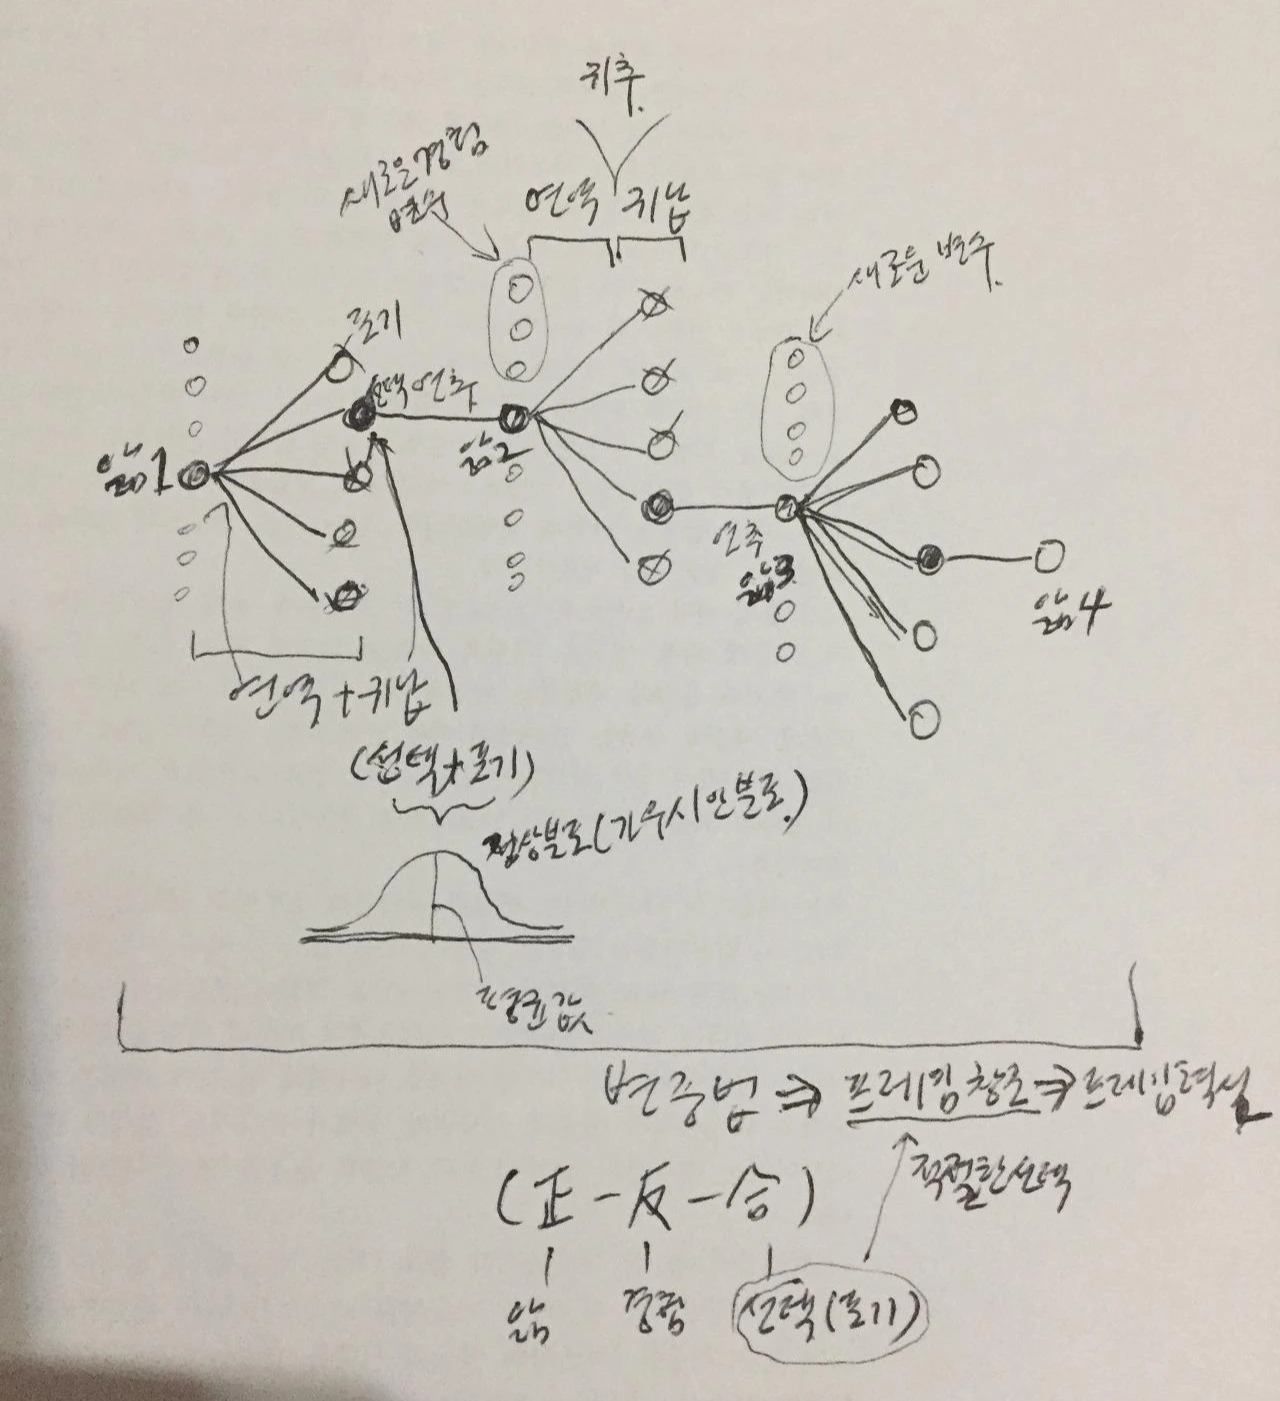 귀추.
새로운경험
변수
연역 귀납
새로운 변수.
포기
선택 연추.
앎1
앎2
연추
앎3
앎4
연역+귀납
(선택+포기)
정상분포(가우시안분포.)
평균값
변증법 ⇒ 프레임창조⇒프레임혁신
적절한선택
(正-反-合)
앎 경험 선택(포기)